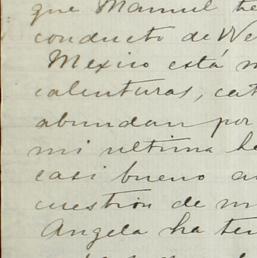 que Manuel te
conducto de We
Mexico está m
calenturas, cat
abundan por
mi ultima he
casi bueno a
cuestion de m
Angela ha ten